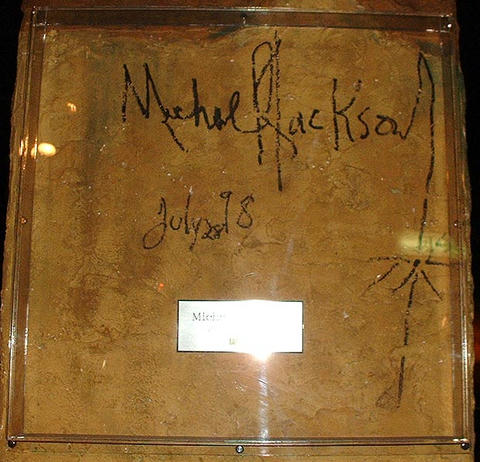 Michal Jackson
July 28 98